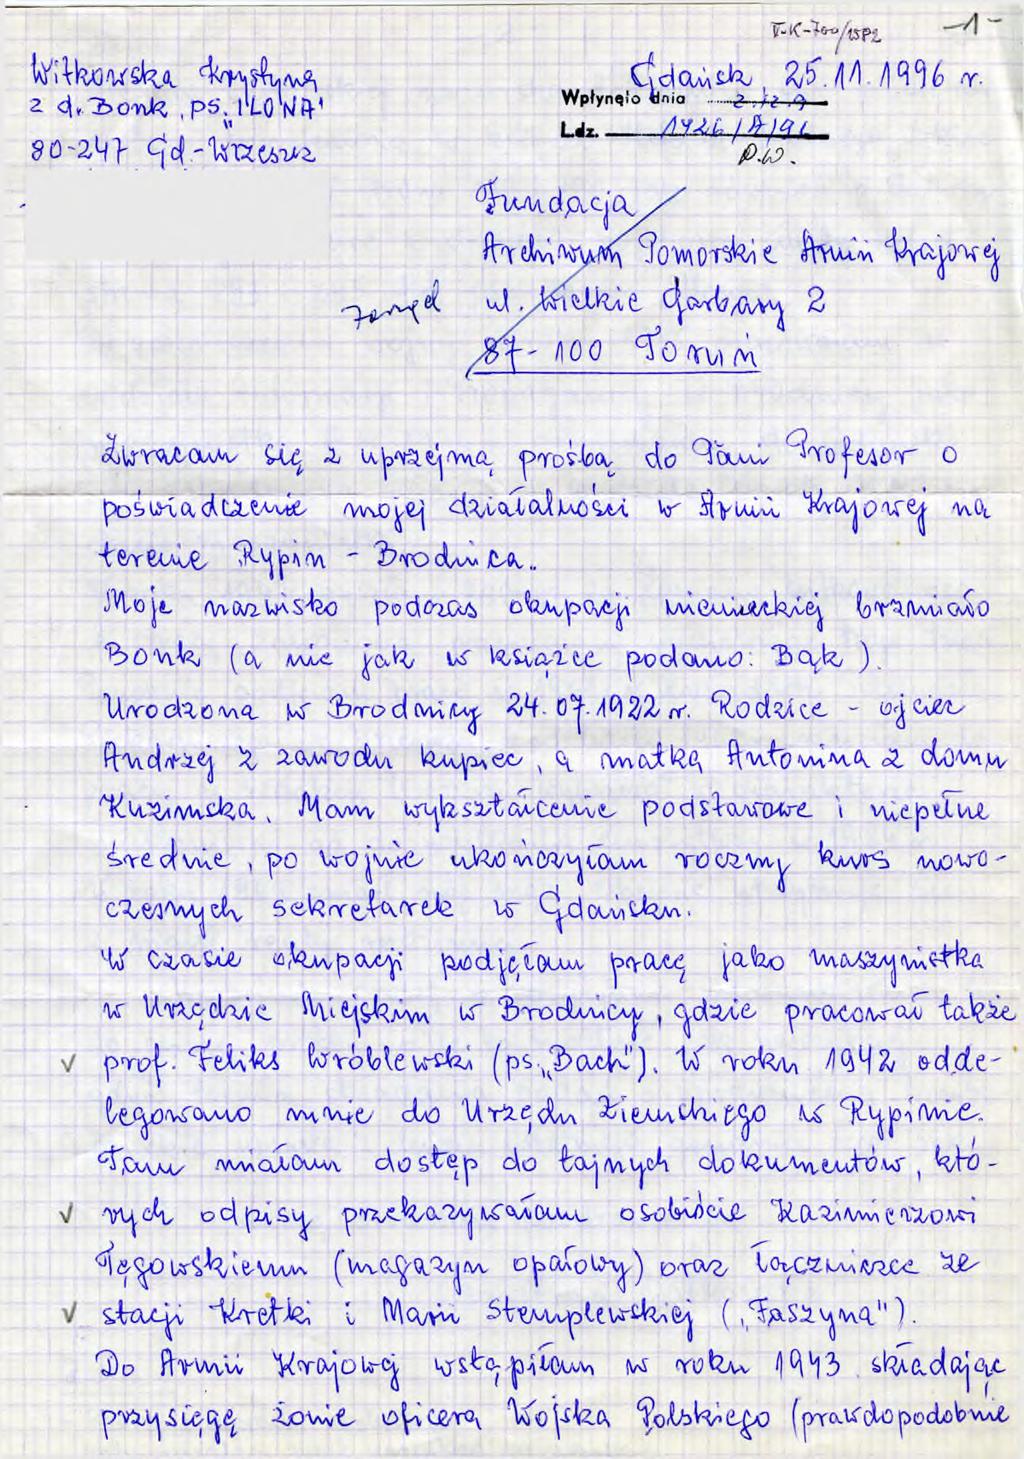 V-K-700/1582
-1-
Witkowska Krystyna
z d. Bonk, ps. "ILONA"
80-247 Gd.-Wrzeszcz
Gdańsk 25.11.1996 r.
Wpłynęło dnia
Ldz. 1426/A/96
Fundacja
Archiwum Pomorskie Armii Krajowej
ul. Wielkie Garbary 2
87-100 Toruń
Zwracam się z uprzejmą prośbą do Pani Profesor o
poświadczenie mojej działalności w Armii Krajowej na
terenie Rypin - Brodnica.
Moje nazwisko podczas okupacji niemieckiej brzmiało
Bonk (a nie jak w książce podano: Bąk).
Urodzona w Brodnicy 24.07.1922 r. Rodzice - ojciec
Andrzej z zawodu kupiec, a matka Antonina z domu
Kuzimska. Mam wykształcenie podstawowe i niepełne
średnie, po wojnie ukończyłam roczny kurs nowo-
czesnych sekretarek w Gdańsku.
W czasie okupacji podjęłam pracę jako maszynistka
w Urzędzie Miejskim w Brodnicy, gdzie pracował także
prof. Feliks Wróblewski (ps. „Bach"). W roku 1942 odde-
legowano mnie do Urzędu Ziemskiego w Rypinie.
Tam miałam dostęp do tajnych dokumentów, któ-
rych odpisy przekazywałam osobiście Kazimierzowi
Tęgowskiemu (magazyn opałowy) oraz łączniczce ze
stacji Kretki i Marii Stemplewskiej („Faszyna").
Do Armii Krajowej wstąpiłam w roku 1943 składając
przysięgę żonie oficera Wojska Polskiego (prawdopodobnie